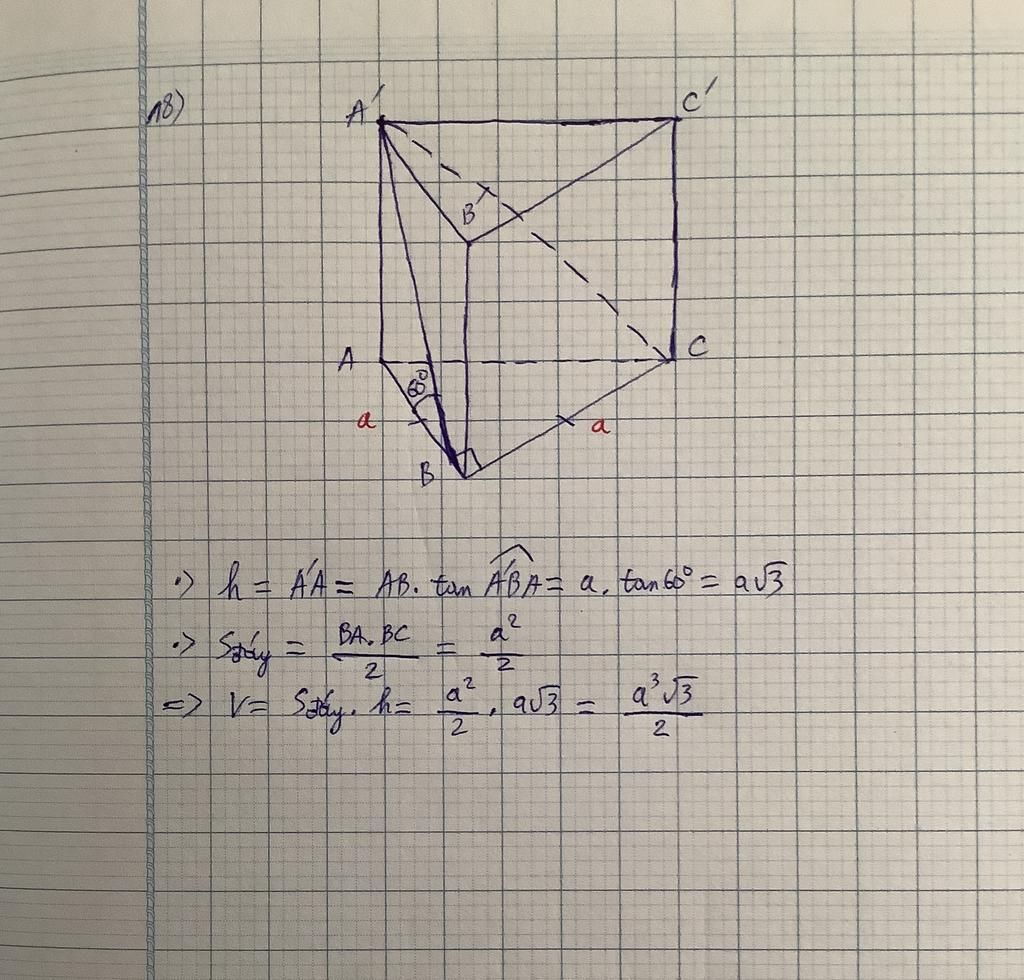 18)
A' C'
B'
A C
60°
a a
B
·> h = A'A = AB. tan A'BA = a. tan60° = a√3
·> Sđáy = BA.BC/2 = a²/2
=> V= Sđáy. h= a²/2 . a√3 = a³√3/2